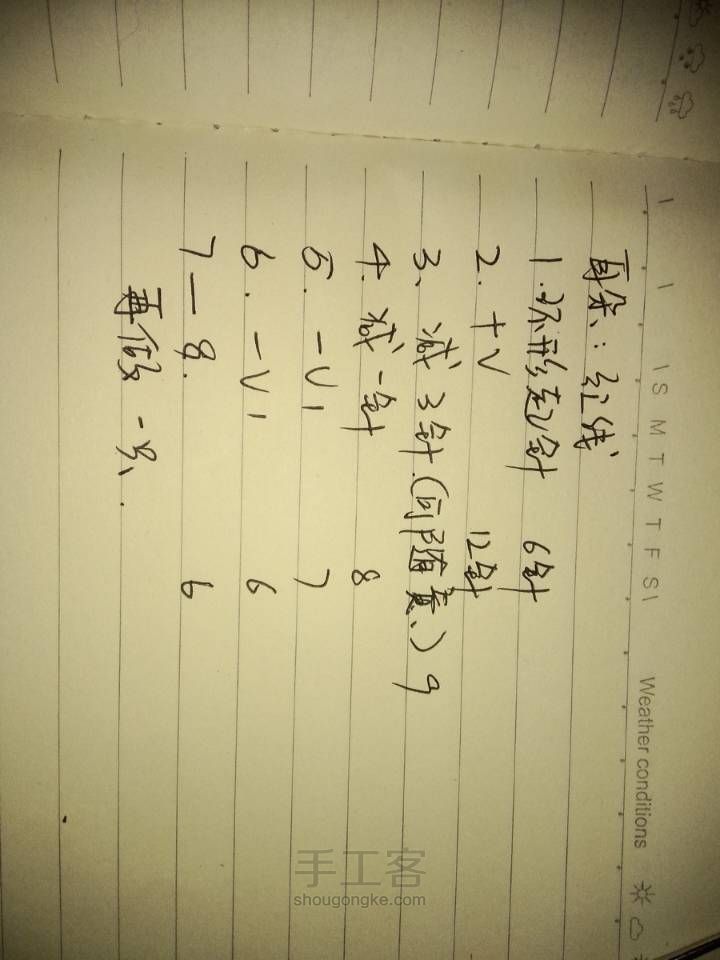 I I I S M T W T F S I Weather conditions
耳朵：红线
1. 环形起针 6针
2. 十V 12针
3、减3针（可随意、） 9
4. 减一针 8
5. 一V1 7
6. 一V1 6
7一8. 6
再做一只、
手工客
shougongke.com